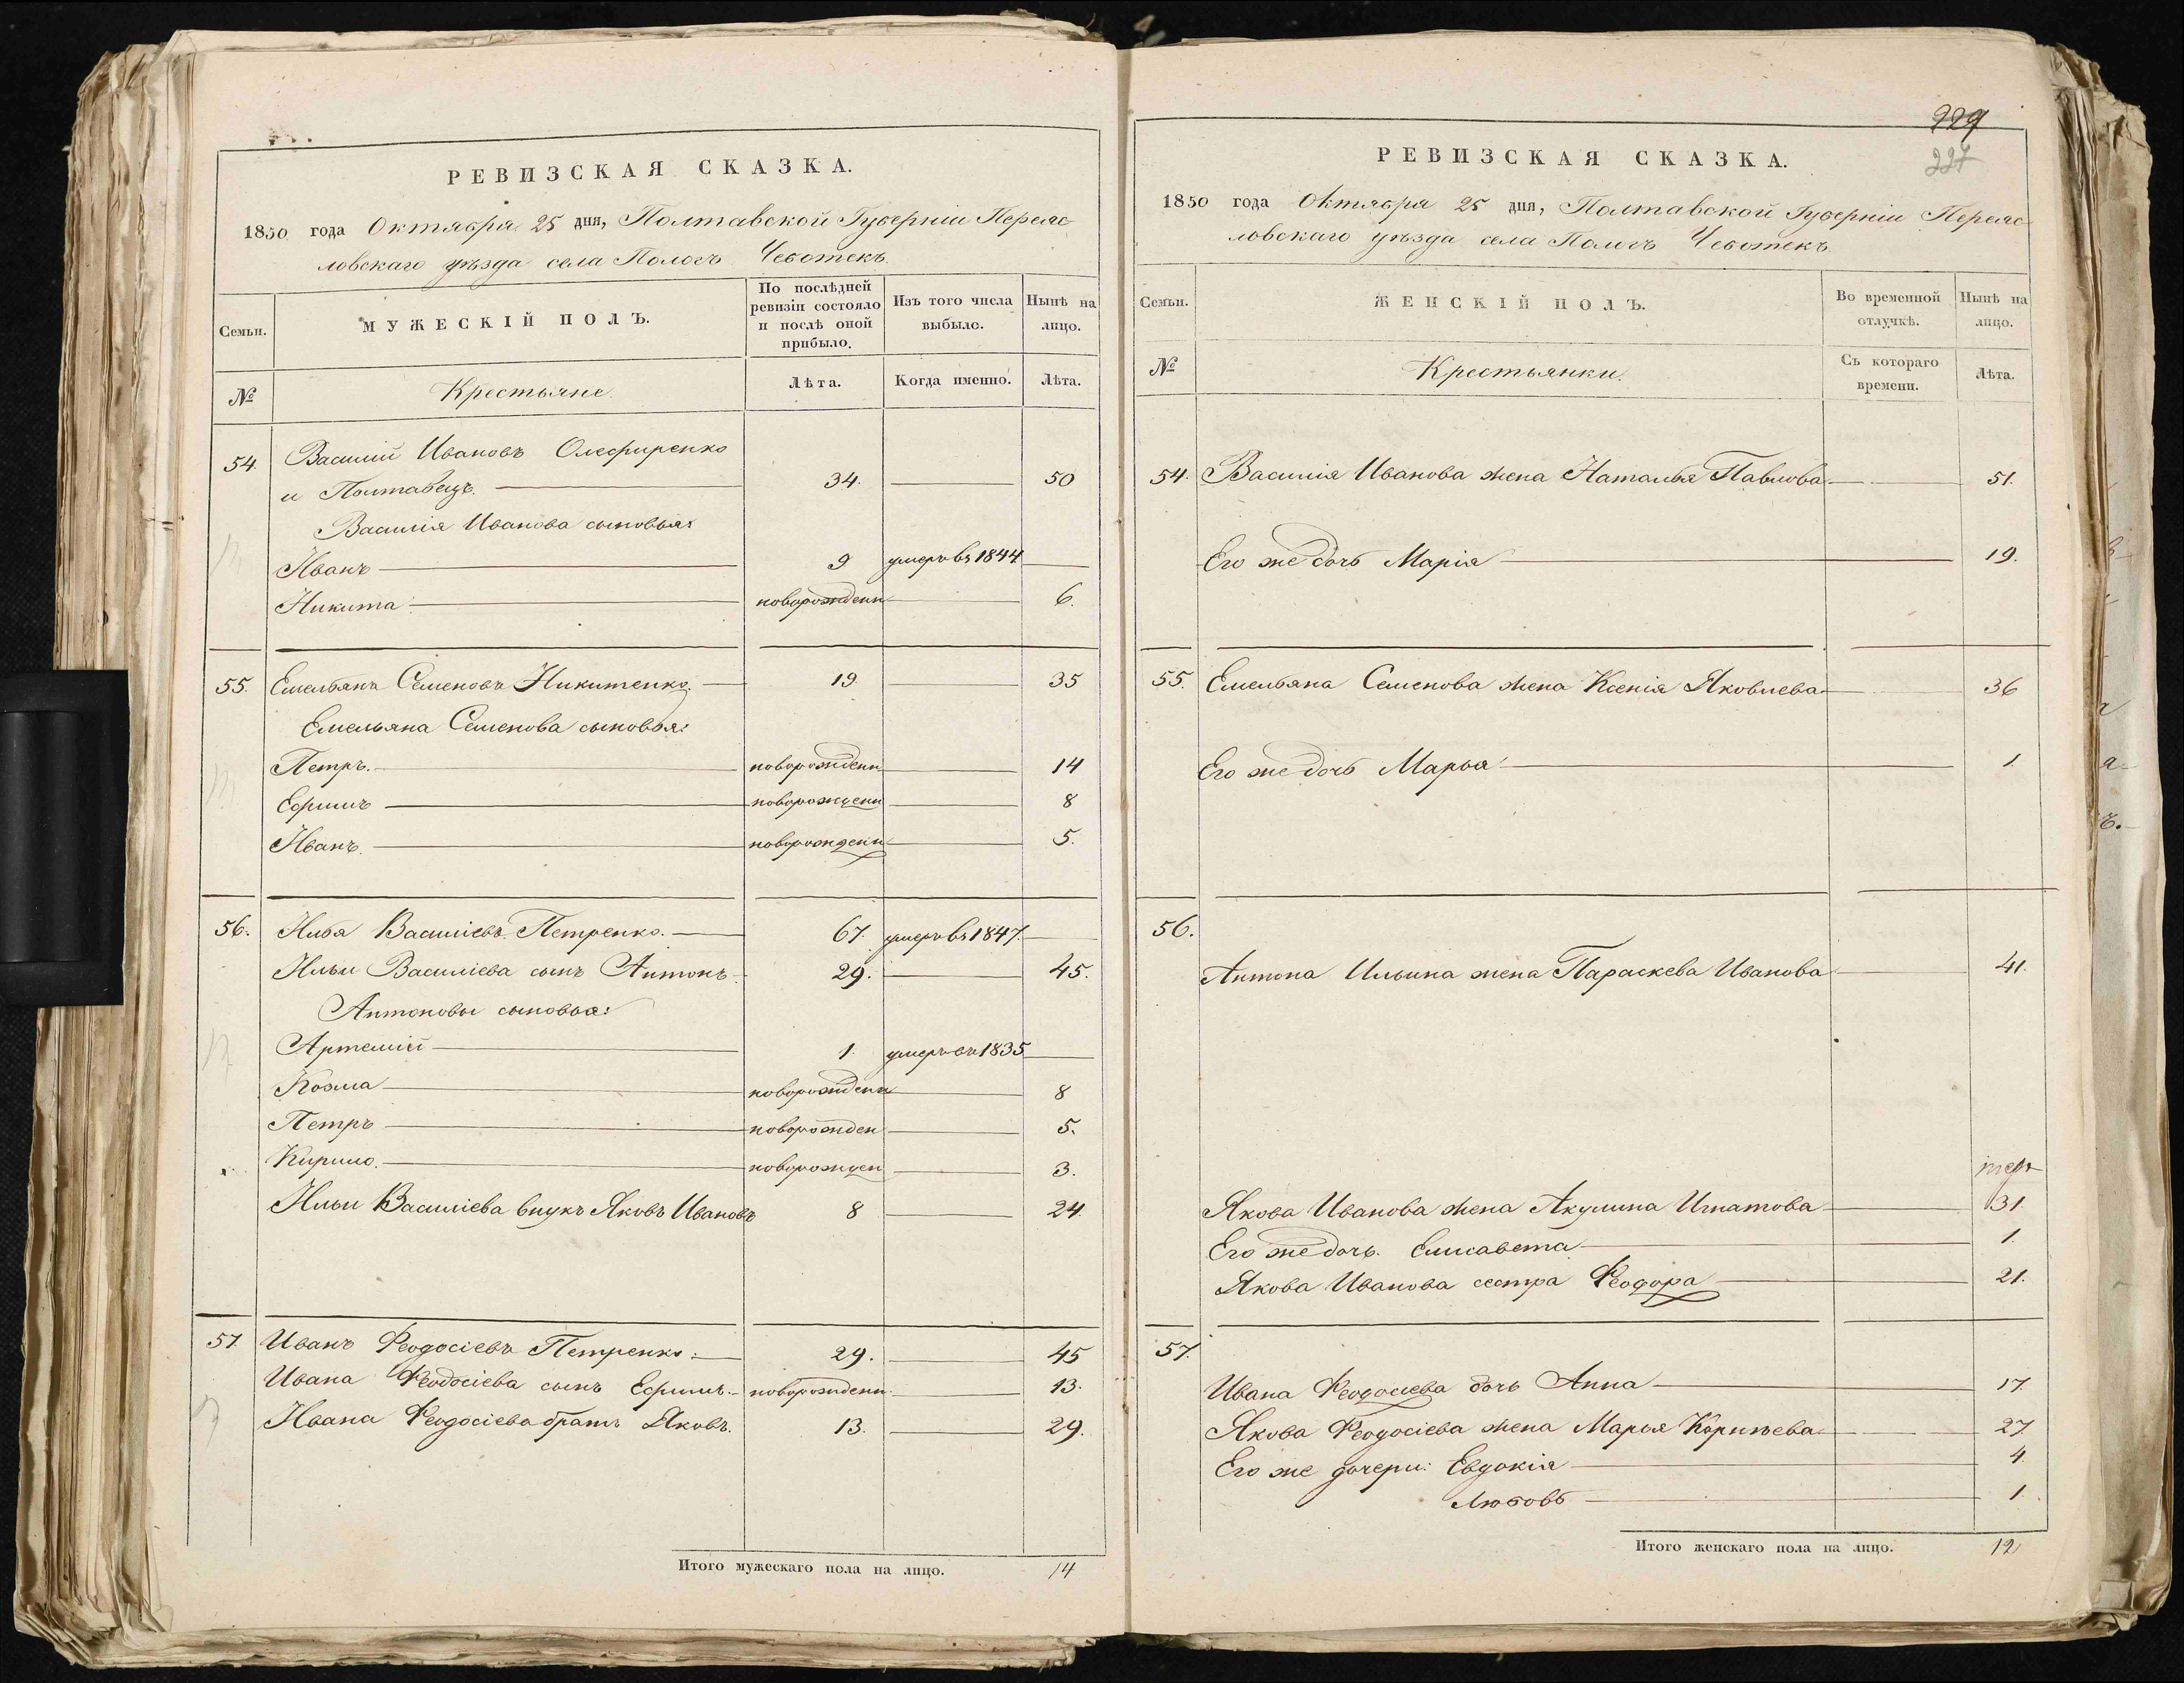 РЕВИЗСКАЯ СКАЗКА.
1850 года Октября 25 дня, Полтавской Губерніи Переяс-
ловскаго уѣзда села Пологъ Чеботекъ.
Семьи.
МУЖЕСКІЙ ПОЛЪ.
По послѣдней ревизіи состояло и послѣ оной прибыло.
Изъ того числа выбыло.
Нынѣ на лицо.
№
Крестьяне.
Лѣта.
Когда именно.
Лѣта.
54. Василій Ивановъ Олефиренко
и Полтавецъ. 34. 50
Василія Иванова сыновья:
Иванъ 9 умеръ въ 1844
Никита новорожденн 6.
55. Емельянъ Семеновъ Никитенко. 19 35
Емельяна Семенова сыновья:
Петръ. новорожденн 14
Ефимъ новорожденн 8
Иванъ. новорожденн 5.
56. Илья Василіевъ Петренко. 67. умеръ въ 1847.
Ильи Василіева сынъ Антонъ. 29. 45.
Антоновы сыновья:
Артемій 1. умеръ въ 1835
Козма новорожденн 8
Петръ новорожден 5.
Кирило. новорожден 3.
Ильи Василіева внукъ Яковъ Ивановъ 8 24.
57. Иванъ Феодосіевъ Петренко: 29. 45
Ивана Феодосіева сынъ Ефимъ. новорожденн. 13.
Ивана Феодосіева братъ Яковъ. 13. 29.
Итого мужескаго пола на лицо. 14
229
227
РЕВИЗСКАЯ СКАЗКА.
1850 года Октября 25 дня, Полтавской Губерніи Переяс
ловскаго уѣзда села Пологъ Чеботекъ.
Семьи.
ЖЕНСКІЙ ПОЛЪ.
Во временной отлучкѣ.
Нынѣ на лицо.
№
Крестьянки.
Съ котораго времени.
Лѣта.
54. Василія Иванова жена Наталья Павлова 51.
Его же дочь Марія 19.
55. Емельяна Семенова жена Ксенія Яковлева 36
Его же дочь Марья 1.
56.
Антона Ильина жена Параскева Иванова 41.
Якова Иванова жена Акулина Игнатова 31.
Его же дочь. Елисавета 1.
Якова Иванова сестра Феодора 21.
57.
Ивана Феодосіева дочь Анна 17.
Якова Феодосіева жена Марья Корнѣева 27
Его же дочери: Евдокія 4.
Любовь 1.
Итого женскаго пола на лицо. 12